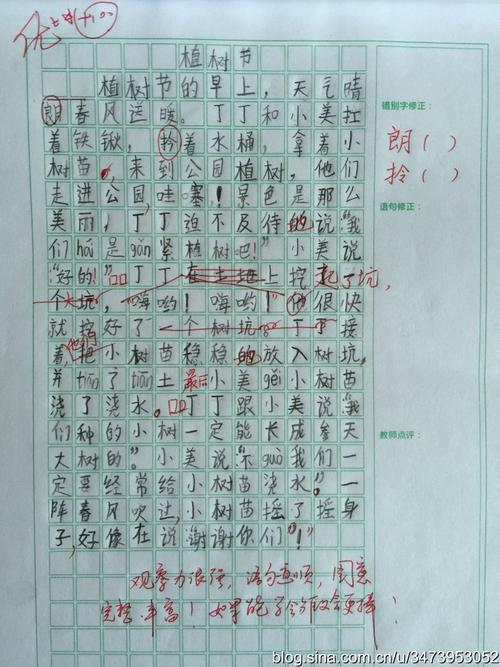 优 十
植树节
植树节的早上，天气晴
朗春风送暖。丁丁和小美扛
着铁锹，衿着水桶，拿着小
树苗，来到公园植树，他们
走进公园，哇塞！景色是那么
美丽，丁丁迫不及待的说“我
们hái是gǎn紧植树吧！”小美说
“好的！”丁丁在土地上挖起了坑，
个大坑，嗨哟！嗨哟！他很快
就挖好了一个树坑。丁丁接
着，他们把小树苗稳稳地放入树坑。
并tián了tián土最后小美gěi小树苗
浇了浇水。丁丁跟小美说“我
们种的小树一定能长成参天
大树的。”小美说“不guò我们一
定要经常给小树苗浇水”。一
阵春风吹过，小树苗摇了摇身
子，好像在说谢谢你们“！”
错别字修正：
朗（ ）
拎（ ）
语句修正：
教师点评：
观察力很强，语句通顺，图意
完整丰富！
blog.sina.com.cn/u/3473953052